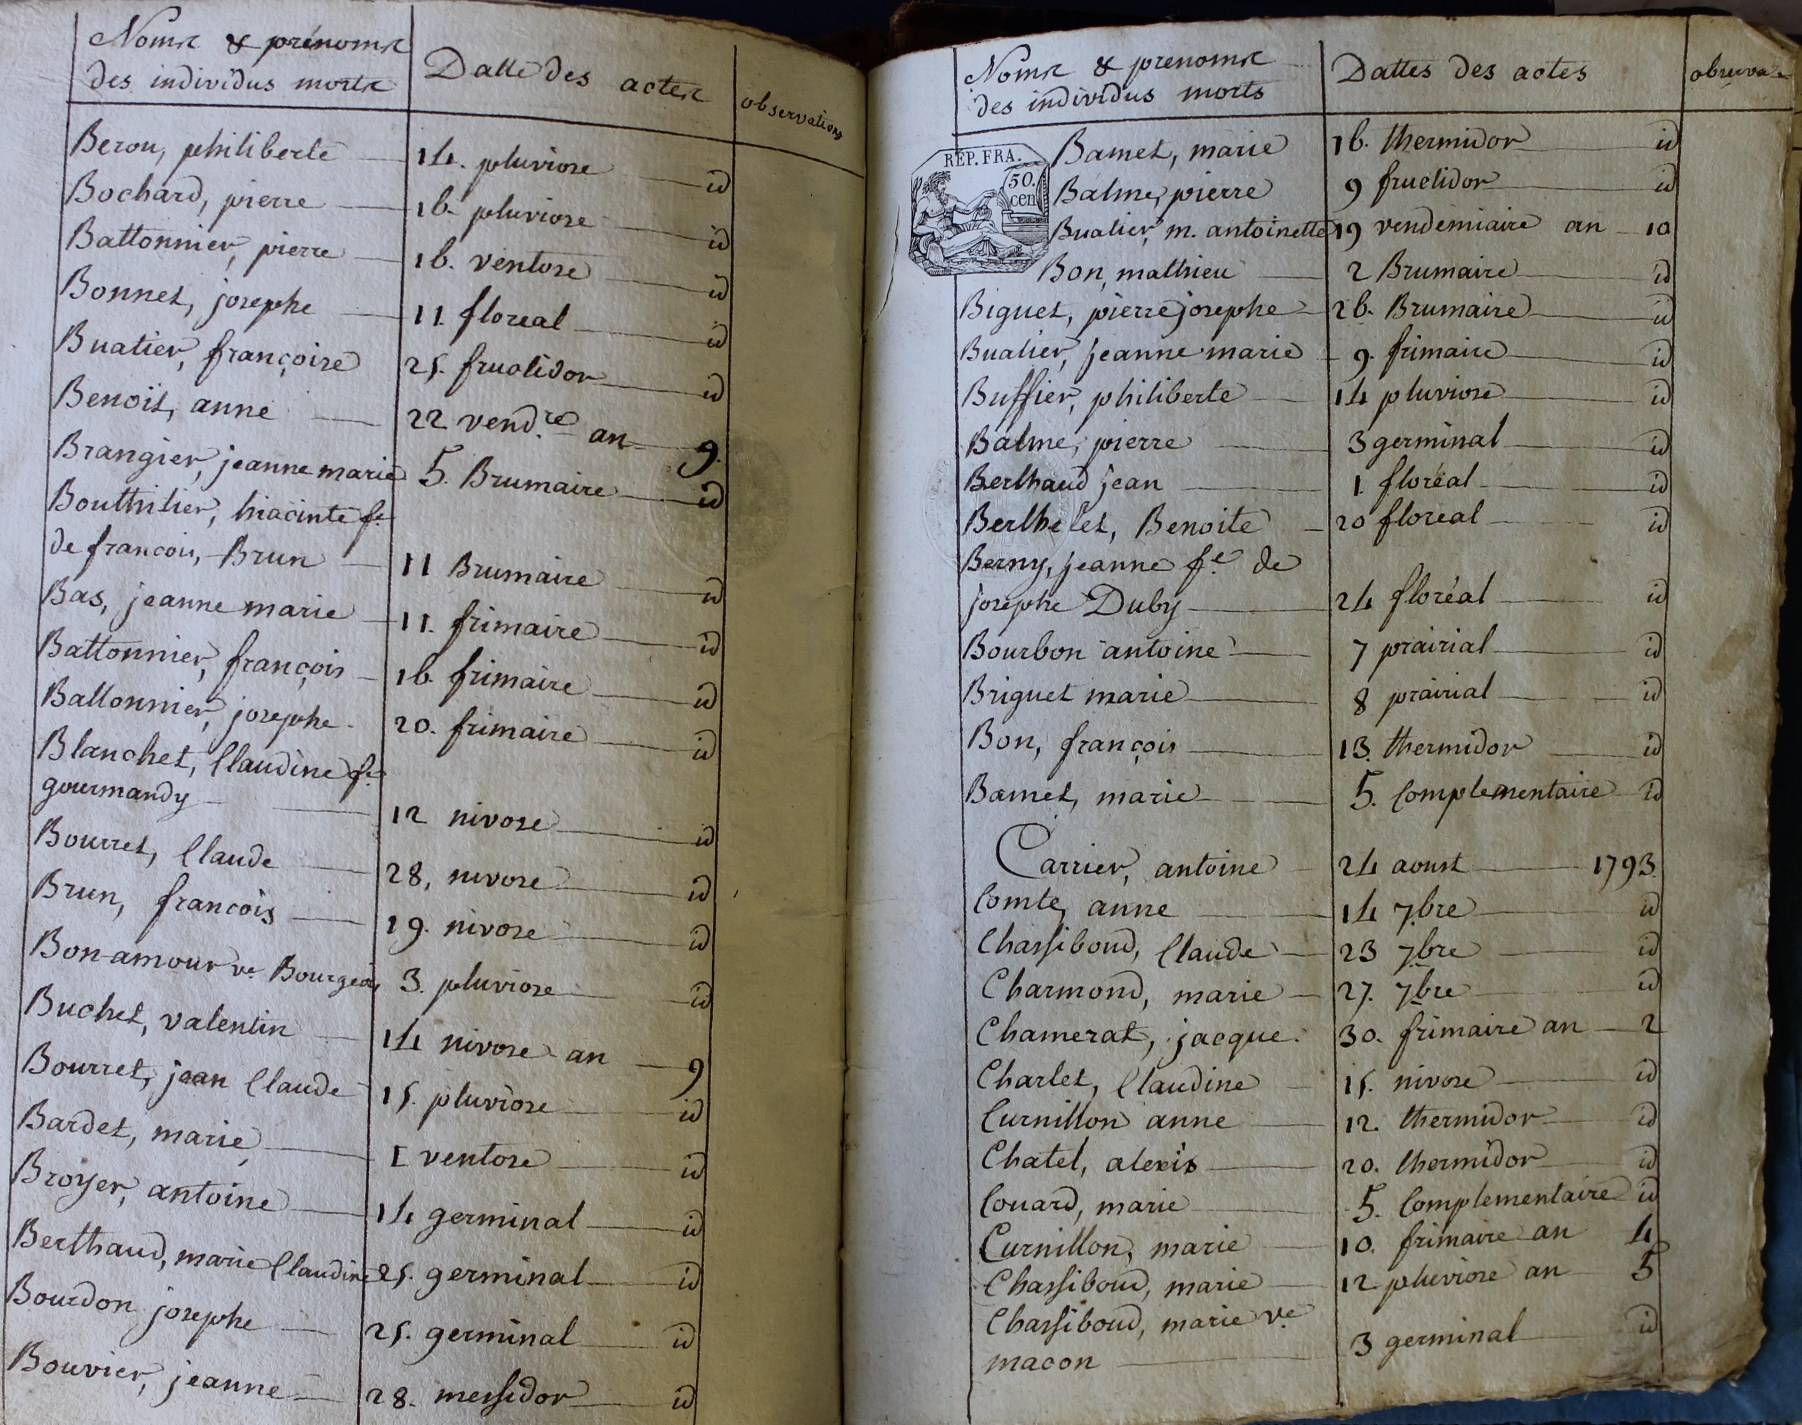 Noms & prénoms
des individus morts
Datte des actes
observations
Berou, philiberte 14. pluviose id
Bochard, pierre 16. pluviose id
Battonnier, pierre 16. ventose id
Bonnet, josephe 11. floreal id
Buatier, françoise 25. fructidor id
Benoit, anne 22 vend.re an 9.
Brangier, jeanne marie 5. Brumaire id
Bouthilier, hiacinte fe
de francois, Brun 11 Brumaire id
Bas, jeanne marie 11. frimaire id
Battonnier, françois 16. frimaire id
Battonnier, josephe 20. frimaire id
Blanchet, Claudine fe
gourmandy 12 nivose id
Bourret, Claude 28, nivose id
Brun, francois 19. nivose id
Bon-amour ve Bourgeois 3. pluviose id
Buchet, valentin 14 nivose an 9
Bourret, jean Claude 15. pluviose id
Bardet, marie 1 ventose id
Broyer, antoine 14 germinal id
Berthaud, marie Claudine 25. germinal id
Bourdon josephe 25. germinal id
Bouvier, jeanne 28. messidor id
Noms & prenoms
des individus morts
Dattes des actes
REP. FRA.
50.
cen
Bamet, marie 16. thermidor id
Balme, pierre 9 fructidor id
Buatier, m. antoinette 19 vendemiaire an 10
Bon, mathieu 2 Brumaire id
Biguet, pierre josephe 26. Brumaire id
Buatier, jeanne marie 9. frimaire id
Buffier, philiberte 14 pluviose id
Balme, pierre 3 germinal id
Berthaud jean 1. floréal id
Berthelet, Benoite 20 floreal id
Berny, jeanne fe de
josephe Duby 24 floréal id
Bourbon antoine 7 prairial id
Briguet marie 8 prairial id
Bon, françois 13. thermidor id
Bamet, marie 5. Complementaire id
Carrier, antoine 24 aoust 1793.
Comte, anne 14 7.bre id
Chassiboud, Claude 23 7.bre id
Charmond, marie 27. 7.bre id
Chamerat, jacque. 30. frimaire an 2
Charlet, Claudine 15. nivose id
Curnillon anne 12. thermidor id
Chatel, alexis 20. thermidor id
Couard, marie 5. Complementaire id
Curnillon, marie 10. frimaire an 4
Chassiboud, marie 12 pluviose an 5
Chassiboud, marie ve
macon 3 germinal id